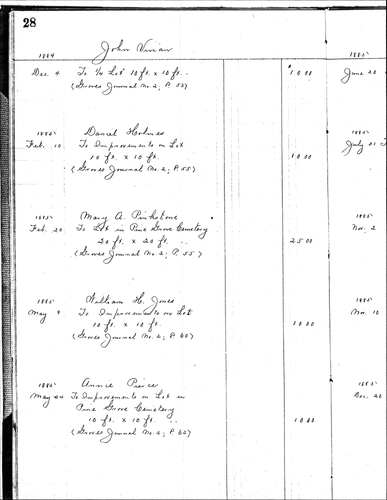 28
John Vivian
1884 1885
Dec. 4 To 1/4 Lot 10 ft. x 10 ft. 10 00 June 20
(Groves Journal No. 2; P. 53)
1885 Daniel Holmes 1885
Feb. 10 To Improvements on Lot July 21
10 ft. x 10 ft. 10 00
(Groves Journal No. 2; P. 55)
1885 Mary A. Pinkstone 1885
Feb. 20 To Lot in Pine Grove Cemetery Nov. 2
20 ft. x 20 ft. 25 00
(Groves Journal No. 2; P. 55)
1885 William H. Jones 1885
May 9 To Improvements on Lot Nov. 10
10 ft. x 10 ft. 10 00
(Groves Journal No. 2; P. 60)
1885 Annie Pierce 1885
May 24 To Improvements on Lot in Dec. 20
Pine Grove Cemetery
10 ft. x 10 ft. 10 00
(Groves Journal No. 2; P. 62)